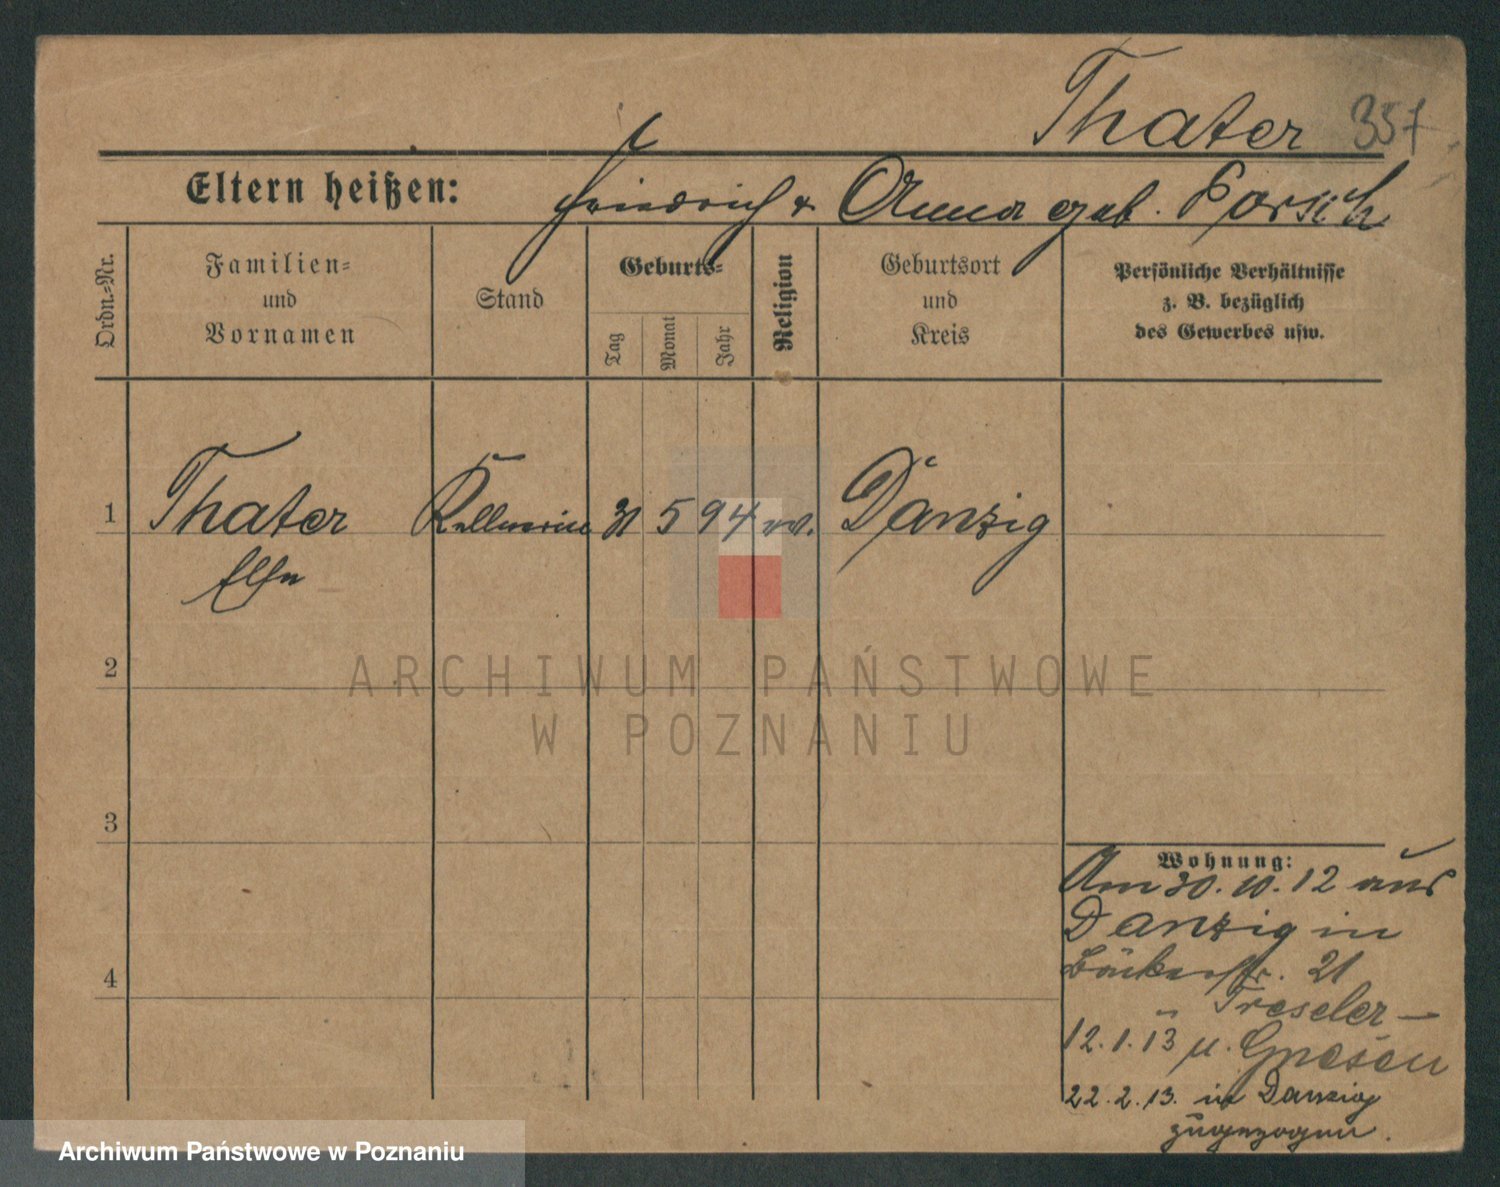 Thater 357
Eltern heißen: Friedrich & Anna geb. Porsch
Ordn.=Nr.
Familien=
und
Vornamen
Stand
Geburts=
Tag
Monat
Jahr
Religion
Geburtsort
und
Kreis
Persönliche Verhältnisse
z. B. bezüglich
des Gewerbes usw.
1 Thater Kellnerin 31 5 94 ev. Danzig
Else
2
ARCHIWUM PAŃSTWOWE
W POZNANIU
3
Wohnung:
Am 30.10.12 aus
Danzig in
Bäckerstr. 21
Treseler
12.1.13 n. Gnesen
4
22.2.13. in Danzig
zugezogen.
Archiwum Państwowe w Poznaniu